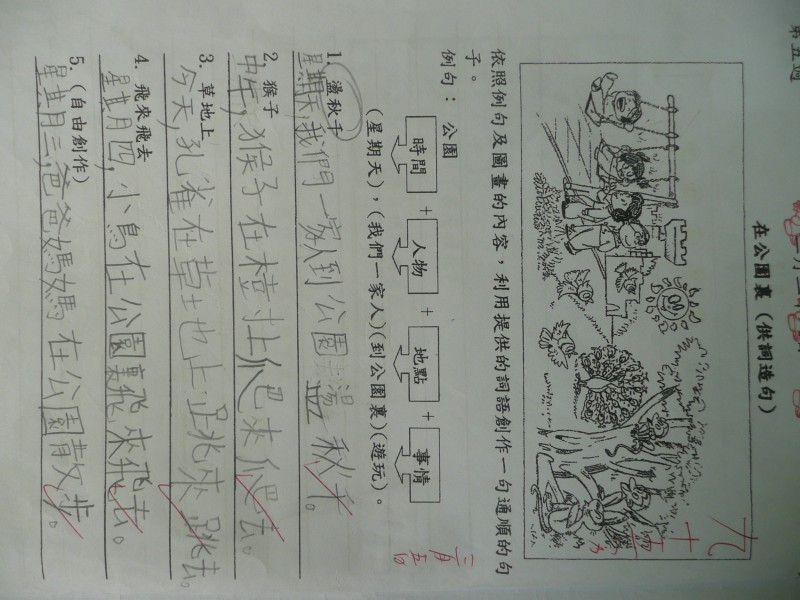 第五週
在公園裏（供詞造句）
九
十
依照例句及圖畫的內容，利用提供的詞語創作一句通順的句
子。
例句： 公園
時間 + 人物 + 地點 + 事情
(星期天)，(我們一家人)(到公園裏)(遊玩)。
三月五日
1. 盪秋千
星期天我們一家人到公園盪秋千。
2. 猴子
中午，猴子在樹上爬來爬去。
3. 草地上
今天，孔雀在草地上跳來跳去。
4. 飛來飛去
星期四，小鳥在公園裏飛來飛去。
5. (自由創作)
星期三，爸爸媽媽在公園散步。